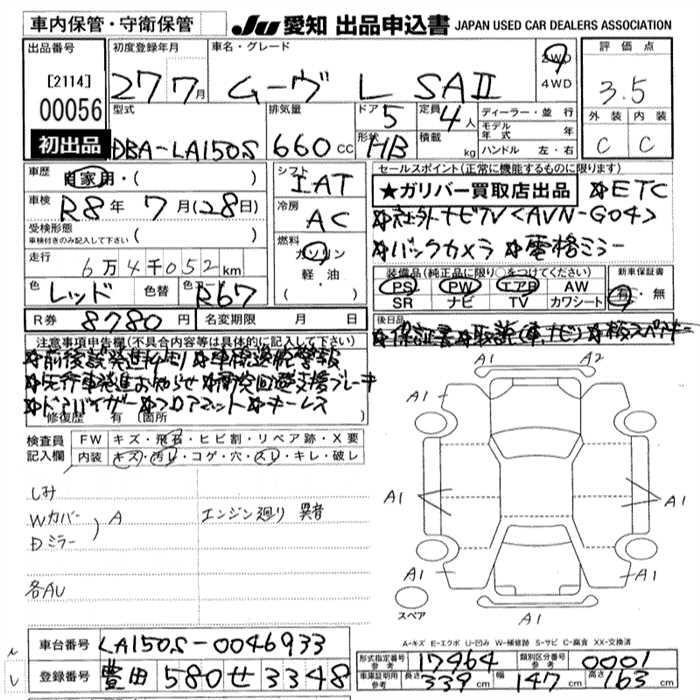 車内保管・守衛保管
JU 愛知 出品申込書 JAPAN USED CAR DEALERS ASSOCIATION
出品番号 初度登録年月 車名・グレード 評価点
[2114] 00056 27 7月 ムーヴ L SAⅡ 2WD 4WD 3.5
型式 排気量 ドア 5 定員 4人 ディーラー・並行 外装 内装
初出品 DBA-LA150S 660cc 形状 HB 積載 kg モデル年式 年 C C
ハンドル 左・右
車歴 自家用・( ) シフト IAT セールスポイント(正常に機能するものに限ります)
車検 R8年 7月(28日) 冷房 AC ★ガリバー買取店出品 ★ETC
受検形態 車検付きのみ記入して下さい ( ) ★社外ナビTV<AVN-G04>
走行 6万4千052km 燃料 ガソリン 軽・油 ( ) ★バックカメラ ★電格ミラー
色 レッド 色替 色コード R67 装備品(純正品に限り○をつけてください) 新車保証書
PS PW エアB AW 有・無
SR ナビ TV カワシート
R券 8780円 名変期限 月 日 後日品
★保証書★取説(車,ナビ)★
注意事項申告欄(不具合内容等は具体的に記入して下さい)
★車検★
★先行車発進お知らせ★
★ドアバイザー★フロアマット★キーレス
修復歴 有 (箇所
検査員記入欄 FW キズ・飛石・ヒビ割・リペア跡・X要
内装 キズ・汚レ・コゲ・穴・スレ・キレ・破レ
しみ
Wカバー A エンジン廻り 異音
Dミラー
各AU
A1 A2
A1
A1 A1
A1 A1
A1
スペア
A-キズ E-エクボ U-凹み W-補修跡 S-サビ C-腐食 XX-交換済
車台番号 LA150S-0046933
形式指定番号 参考 17464 類別区分番号 参考 0001
登録番号 豊田 580 せ 3348
車庫証明用 参考 長さ 339cm 幅 147cm 高さ 163cm